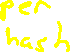 per
hash